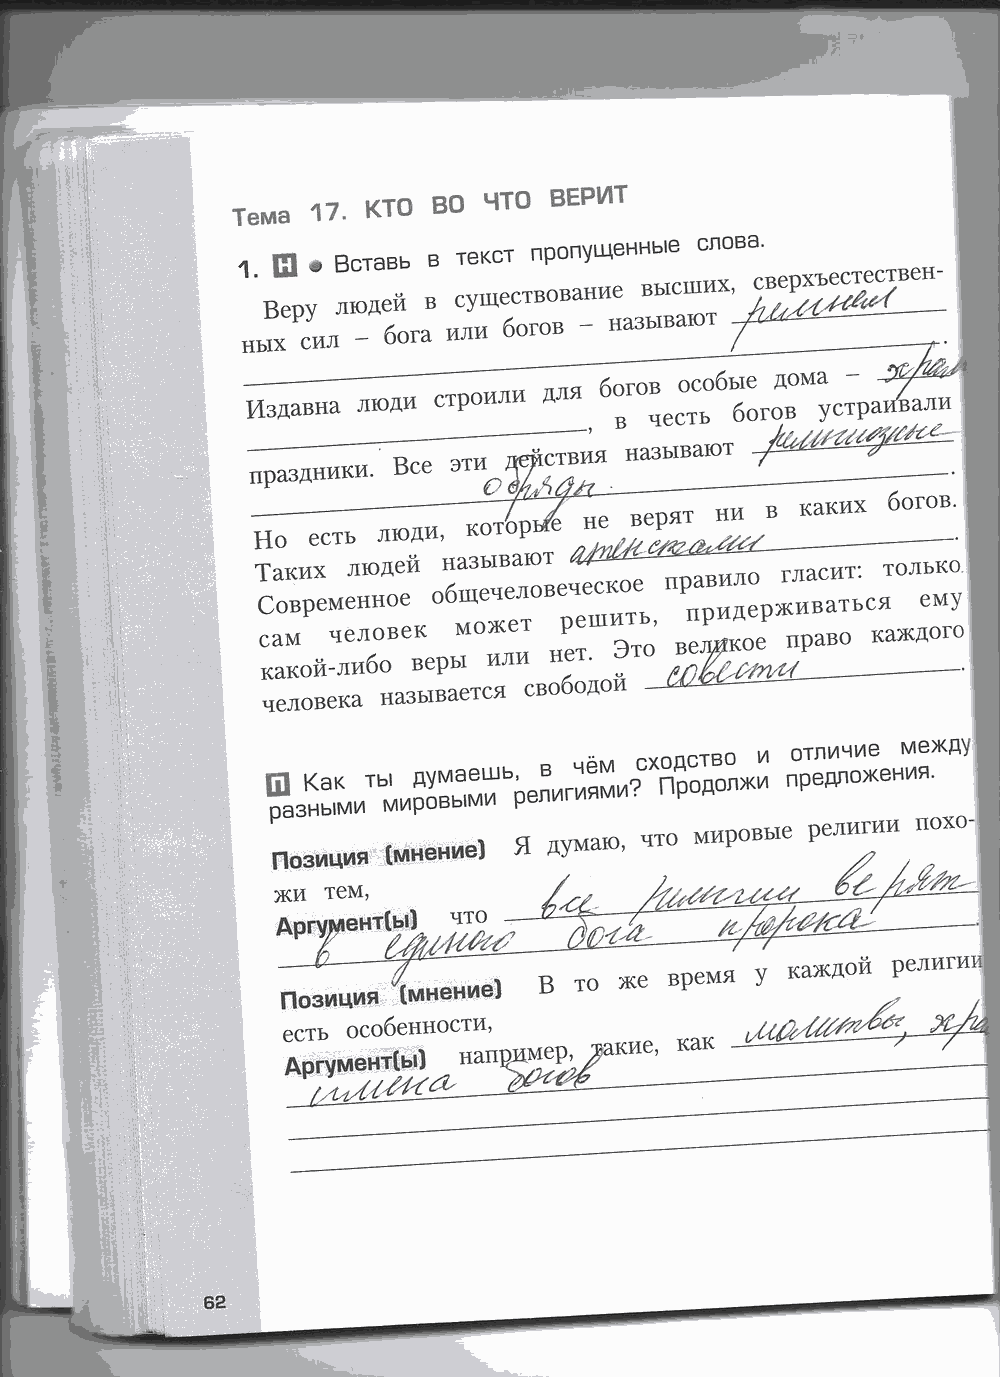 Тема 17. КТО ВО ЧТО ВЕРИТ
1. Н ● Вставь в текст пропущенные слова.
Веру людей в существование высших, сверхъестествен-
ных сил – бога или богов – называют
.
Издавна люди строили для богов особые дома – храм
, в честь богов устраивали
праздники. Все эти действия называют религиозные
обряды .
Но есть люди, которые не верят ни в каких богов.
Таких людей называют атеистами .
Современное общечеловеческое правило гласит: только
сам человек может решить, придерживаться ему
какой-либо веры или нет. Это великое право каждого
человека называется свободой совести .
П Как ты думаешь, в чём сходство и отличие между
разными мировыми религиями? Продолжи предложения.
Позиция (мнение) Я думаю, что мировые религии похо-
жи тем,
Аргумент(ы) что все религии верят
в единого бога пророка .
Позиция (мнение) В то же время у каждой религии
есть особенности,
Аргумент(ы) например, такие, как молитвы, хра
имена богов
62